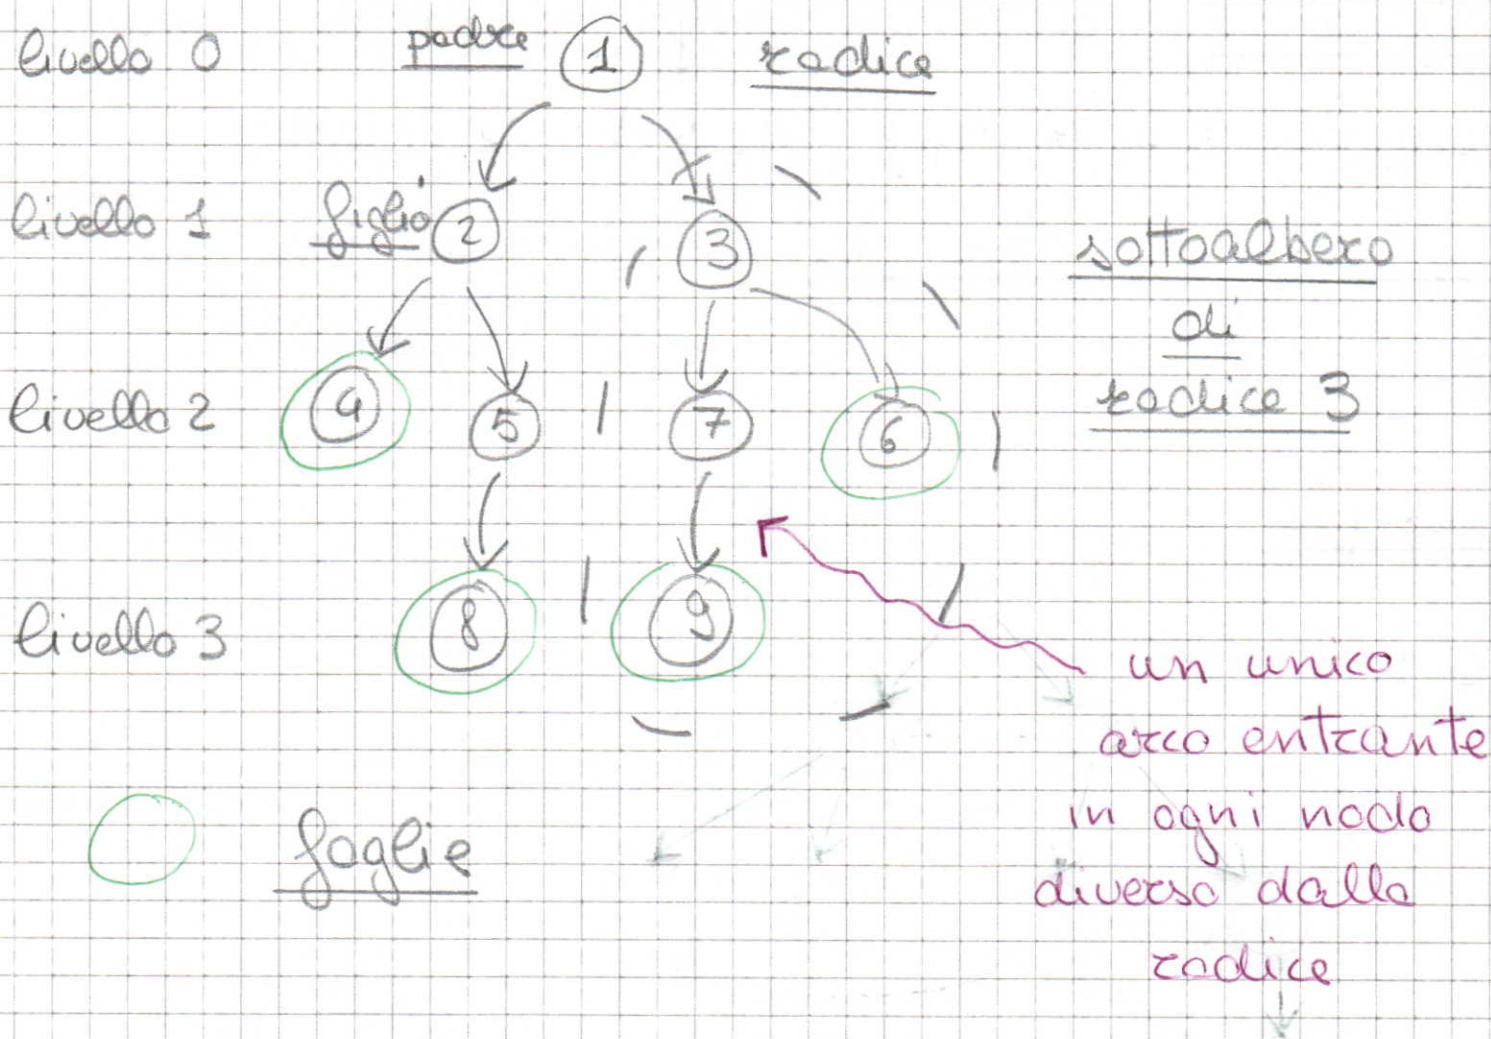 livello 0 padre 1 radice
livello 1 figlio 2 3
sottoalbero
di
radice 3
livello 2 4 5 7 6
livello 3 8 9
un unico
arco entrante
in ogni nodo
diverso dalla
radice
foglie